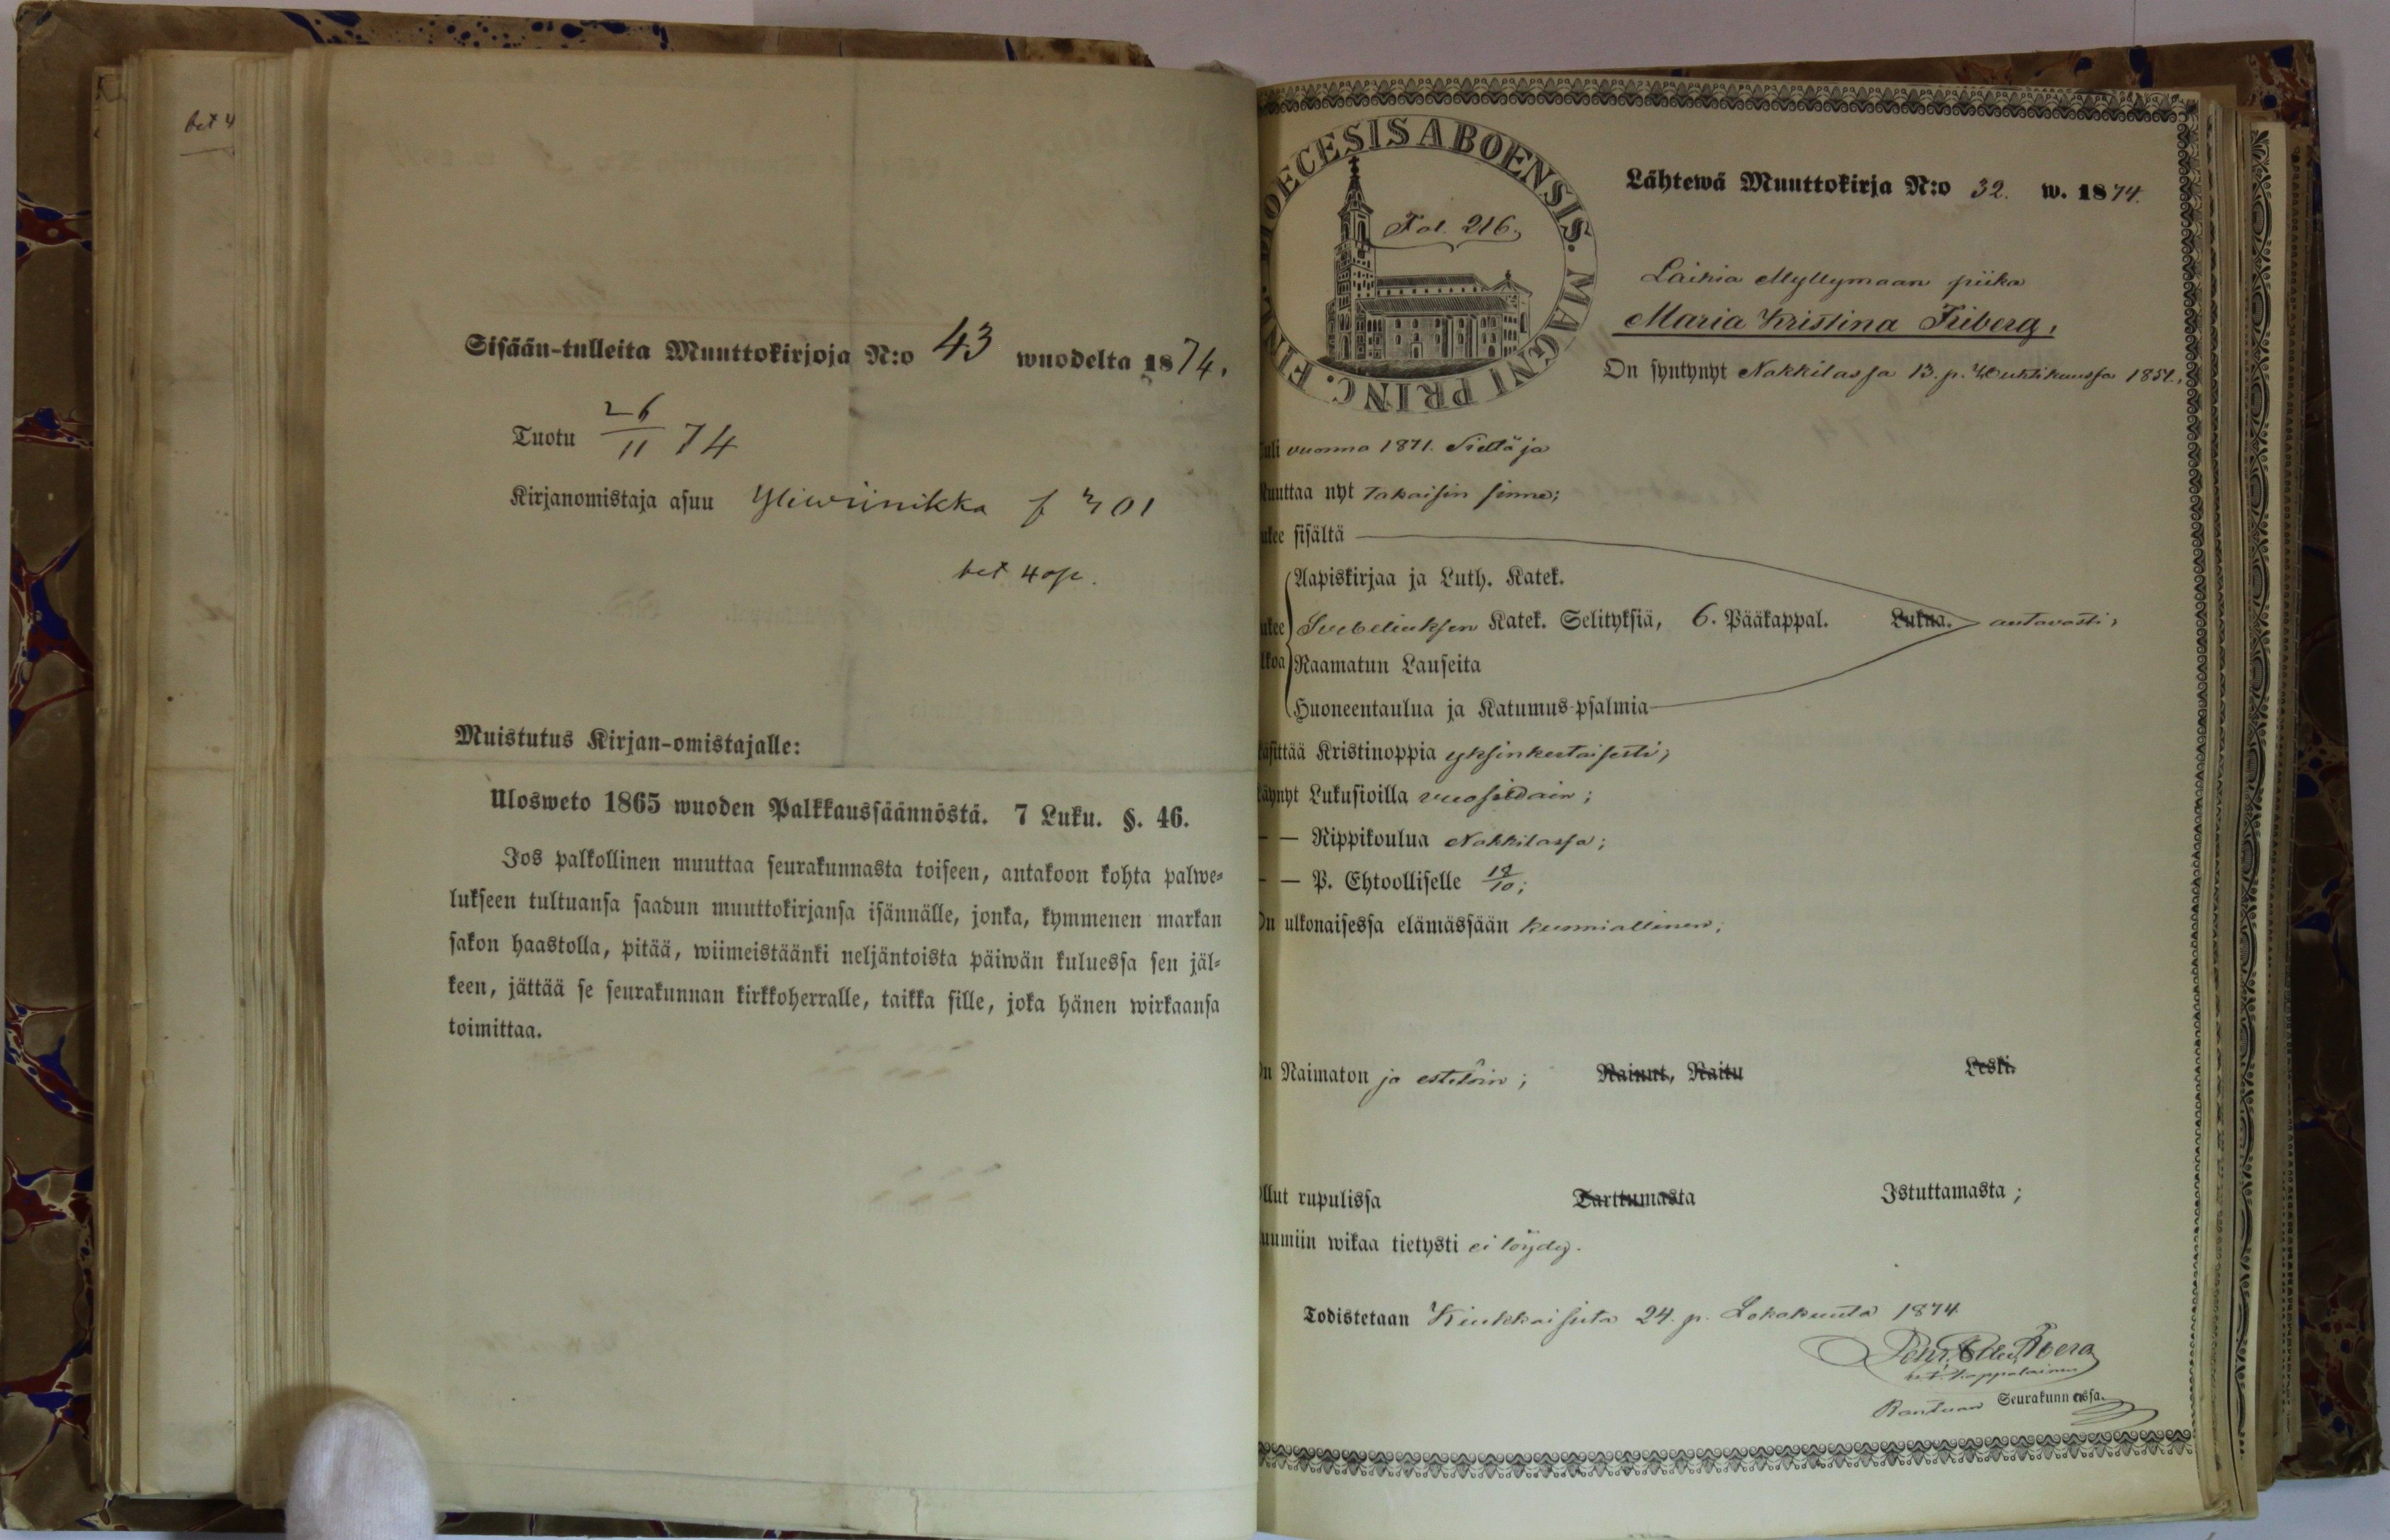 bet 4
Sisään-tulleita Muuttokirjoja N:o 43 wuodelta 1874.
Tuotu 26/11 74
Kirjanomistaja asuu Yliwiinikka f 301
bet 40p.
Muistutus Kirjan-omistajalle:
Ulosweto 1865 wuoden Palkkaussäännöstä. 7 Luku. §. 46.
Jos palkollinen muuttaa seurakunnasta toiseen, antakoon kohta palwe=
lukseen tultuansa saadun muuttokirjansa isännälle, jonka, kymmenen markan
sakon haastolla, pitää, wiimeistäänki neljäntoista päiwän kuluessa sen jäl=
keen, jättää se seurakunnan kirkkoherralle, taikka sille, joka hänen wirkaansa
toimittaa.
DIOECESIS ABOENSIS. MAGNI PRINC. FINL.
Fol. 216.
Lähtewä Muuttokirja N:o 32. w. 1874.
Laihia Myllymaan piika
Maria Kristina Friberg,
On syntynyt Nakkilassa 13. p. Huhtikuussa 1851.,
tuli vuonna 1871. Sieltä ja
Muuttaa nyt takaisin sinne;
ukee sisältä
Aapiskirjaa ja Luth. Katek.
ukee Svebeliuksen Katek. Selityksiä, 6. Pääkappal. Lukua. autavasti,
lkoa Raamatun Lauseita
Huoneentaulua ja Katumus-psalmia
käsittää Kristinoppia yksinkertaisesti;
Käynyt Lukusioilla vuosittain;
— — Rippikoulua Nakkilassa;
— — P. Ehtoolliselle 18/10;
On ulkonaisessa elämässään kunniallinen;
On Naimaton ja estetöin; Nainut, Naitu Leski.
Ollut rupulissa Tarttumasta Istuttamasta;
uumiin wikaa tietysti ei löydy.
Todistetaan Kiukkaisista 24. p. Lokakuuta 1874
Kappalainen
Seurakunnassa.